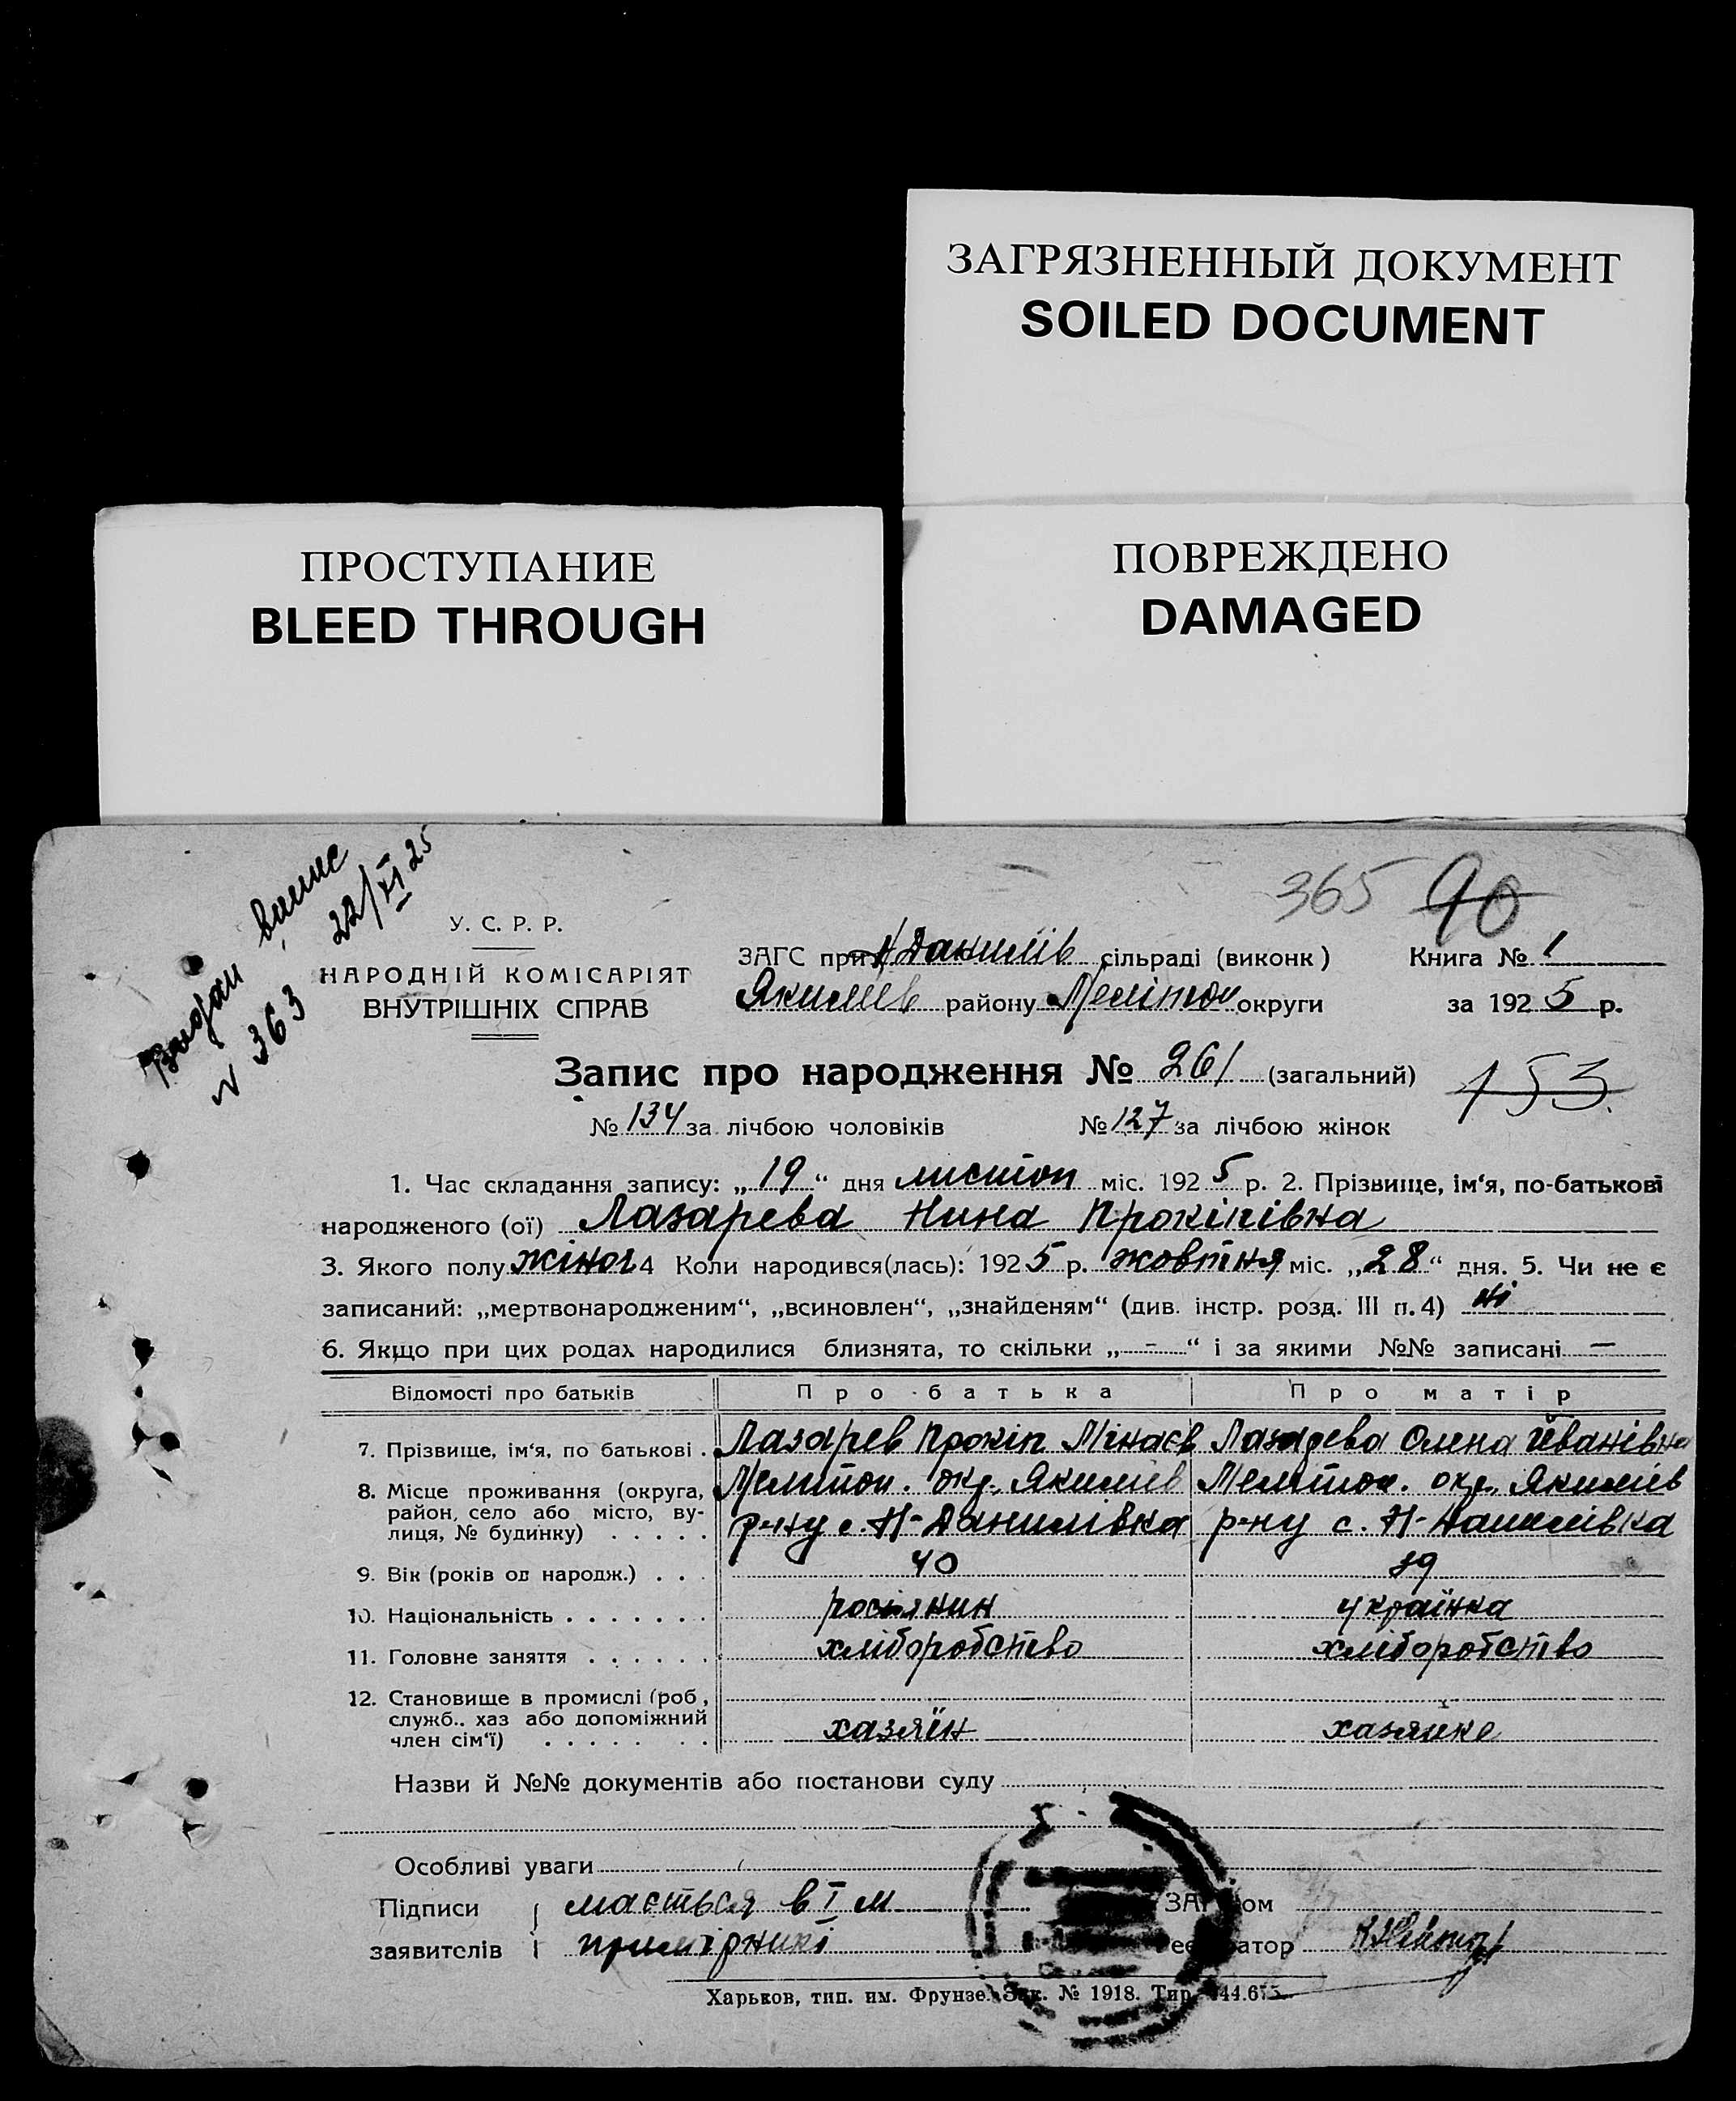 ЗАГРЯЗНЕННЫЙ ДОКУМЕНТ
SOILED DOCUMENT
ПРОСТУПАНИЕ
BLEED THROUGH
ПОВРЕЖДЕНО
DAMAGED
Видан випис
№ 363 22/XI 25
365 90
У. С. Р. Р.
НАРОДНІЙ КОМІСАРІЯТ
ВНУТРІШНІХ СПРАВ
ЗАГС при Н Данилів сільраді (виконк) Книга № 1
Якимів району Меліт округи за 1925 р.
Запис про народження № 261 (загальний) 153
№ 134 за лічбою чоловіків № 127 за лічбою жінок
1. Час складання запису: „19“ дня листоп міс. 1925 р. 2. Прізвище, ім‘я, по-батькові
народженого (ої) Лазарева Нина Прокіпівна
3. Якого полу жіноч 4 Коли народився(лась): 1925 р. жовтня міс. „28“ дня. 5. Чи не є
записаний: „мертвонародженим“, „всиновлен“, „знайденям“ (див. інстр. розд. III п. 4) ні
6. Якщо при цих родах народилися близнята, то скільки „-“ і за якими №№ записані —
Відомості про батьків Про батька Про матір
7. Прізвище, ім‘я, по батькові . Лазарев Прокіп Мінаєв Лазарева Олена Иванівна
8. Місце проживання (округа, район, село або місто, ву- Мелитоп. окр. Якимів Мелитоп. окр. Якимів
лиця, № будинку) . . . . . р-ну с. Н-Данилівка р-ну с. Н-Данилівка
9. Вік (років од народж.) . . . 40 39
10. Національність . . . . . . . росіянин українка
11. Головне заняття . . . . . . хліборобство хліборобство
12. Становище в промислі (роб,
служб.. хаз або допоміжний
член сім‘ї) . . . . . . . хазяїн хазяйке
Назви й №№ документів або постанови суду
Особливі уваги
Підписи мається в I м ЗАГСом
заявителів примірникі Реєстратор
Харьков, тип. им. Фрунзе. Зак. № 1918. Тир.